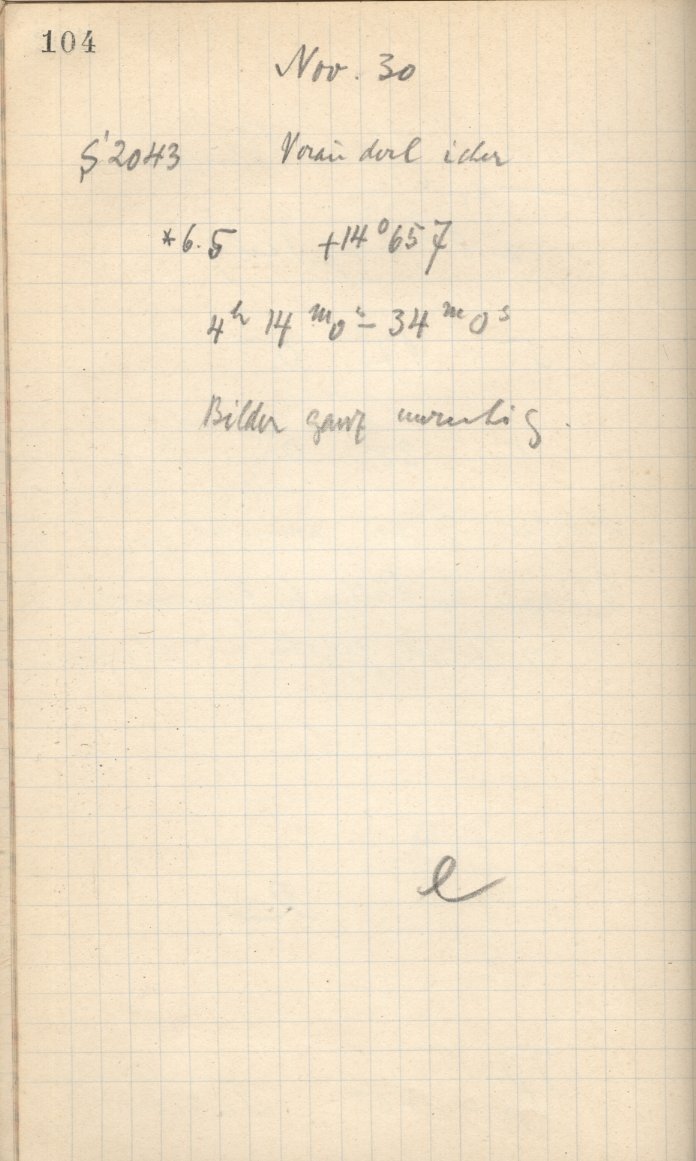 104
Nov. 30
S'2043 Veränderlicher
*6.5 +14°657
4h 14m0s – 34m0s
Bilder ganz unruhig.
e